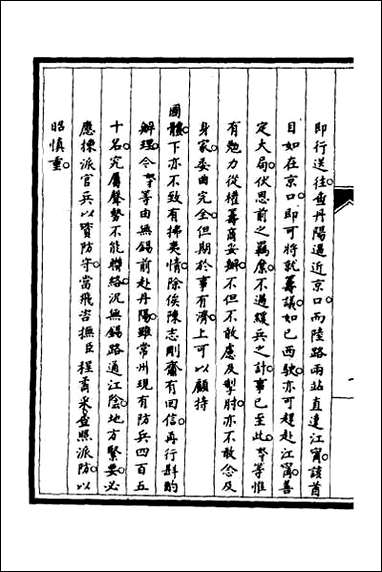 即行送往。查丹陽逼近京口。而陸路兩站直達江甯。該酋
目如在京口。即可將就籌議。如已西駛。亦可趕赴江甯。善
定大局。伏思前之羈縻。不過緩兵之計。事已至此。等惟
有勉力從權籌商妥辦。不但不敢慮及掣肘。亦不敢念及
身家委曲完全。但期於事有濟。上可以顧持
國體。下亦不致有拂夷情。除俟陳志剛齎有回信。再行斟酌
辦理。令等由無錫前赴丹陽。雖常州現有防兵四百五
十名。究屬聲勢不能聯絡。況無錫路通江陰。地方緊要。必
應揀派官兵以資防守。當飛咨撫臣程矞采。查照派防。以
昭慎重。